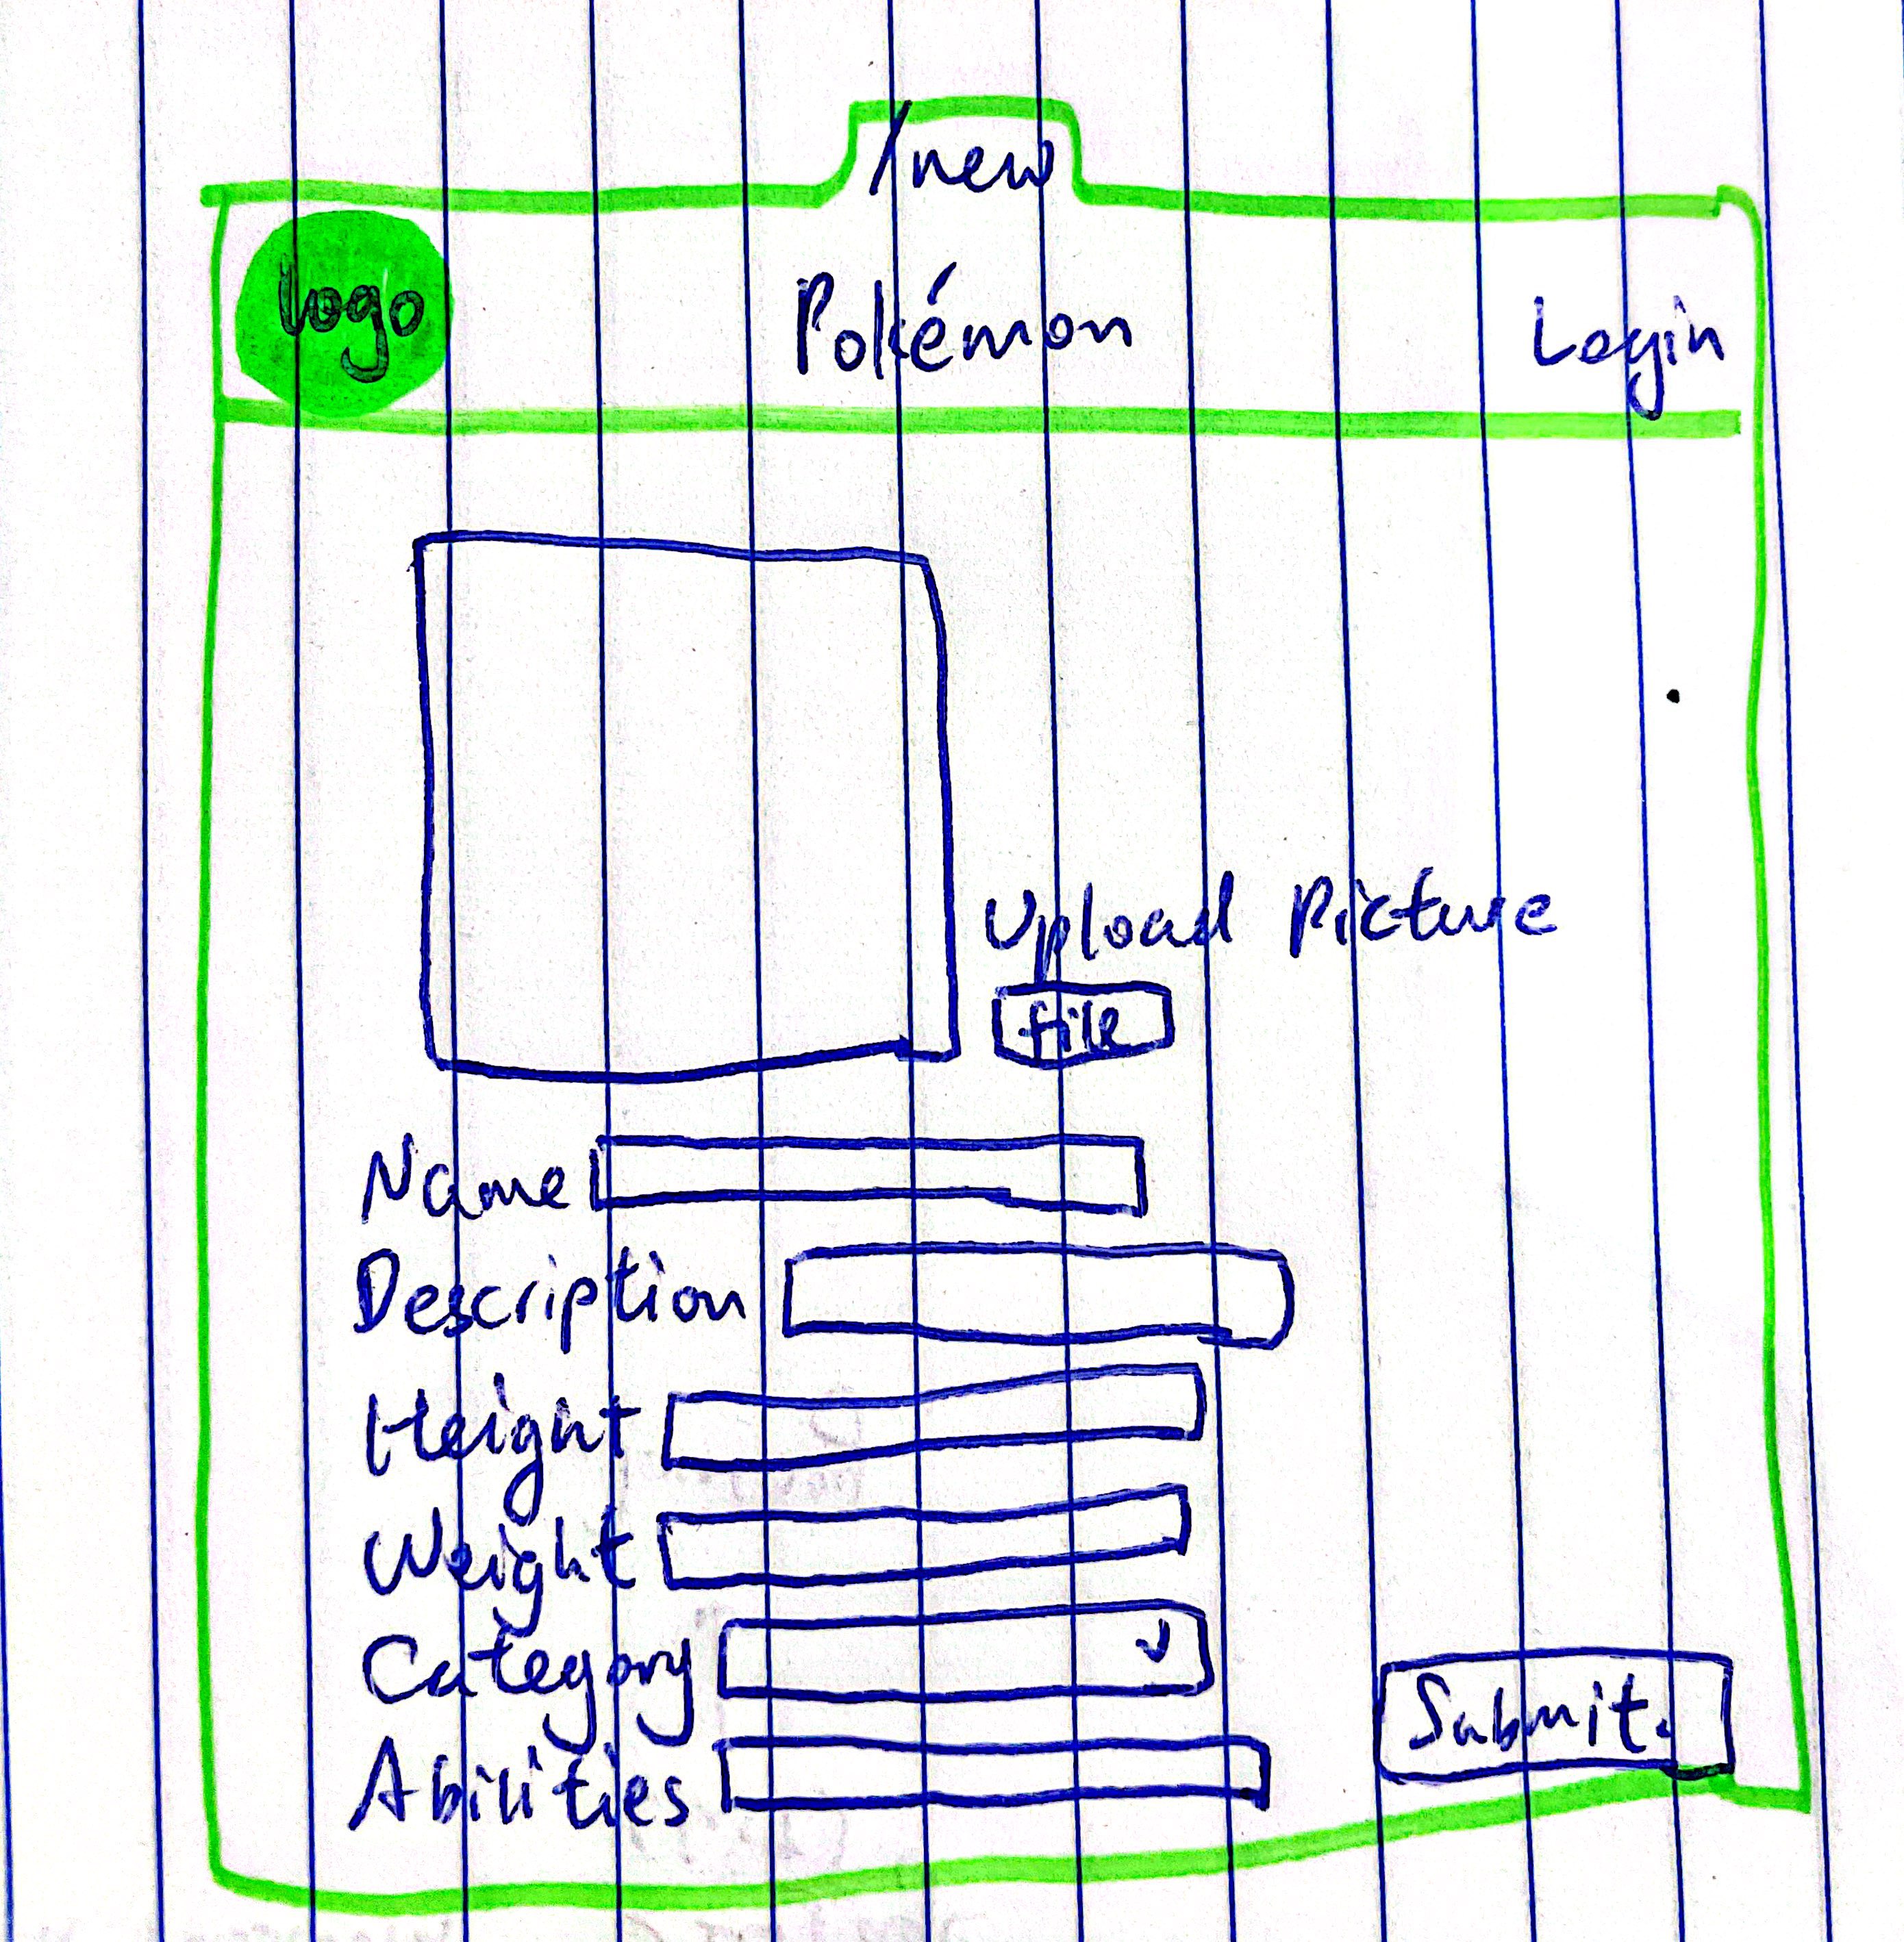 /new
logo Pokémon Login
Upload Picture
file
Name
Description
Height
Weight
Category
Abilities
Submit